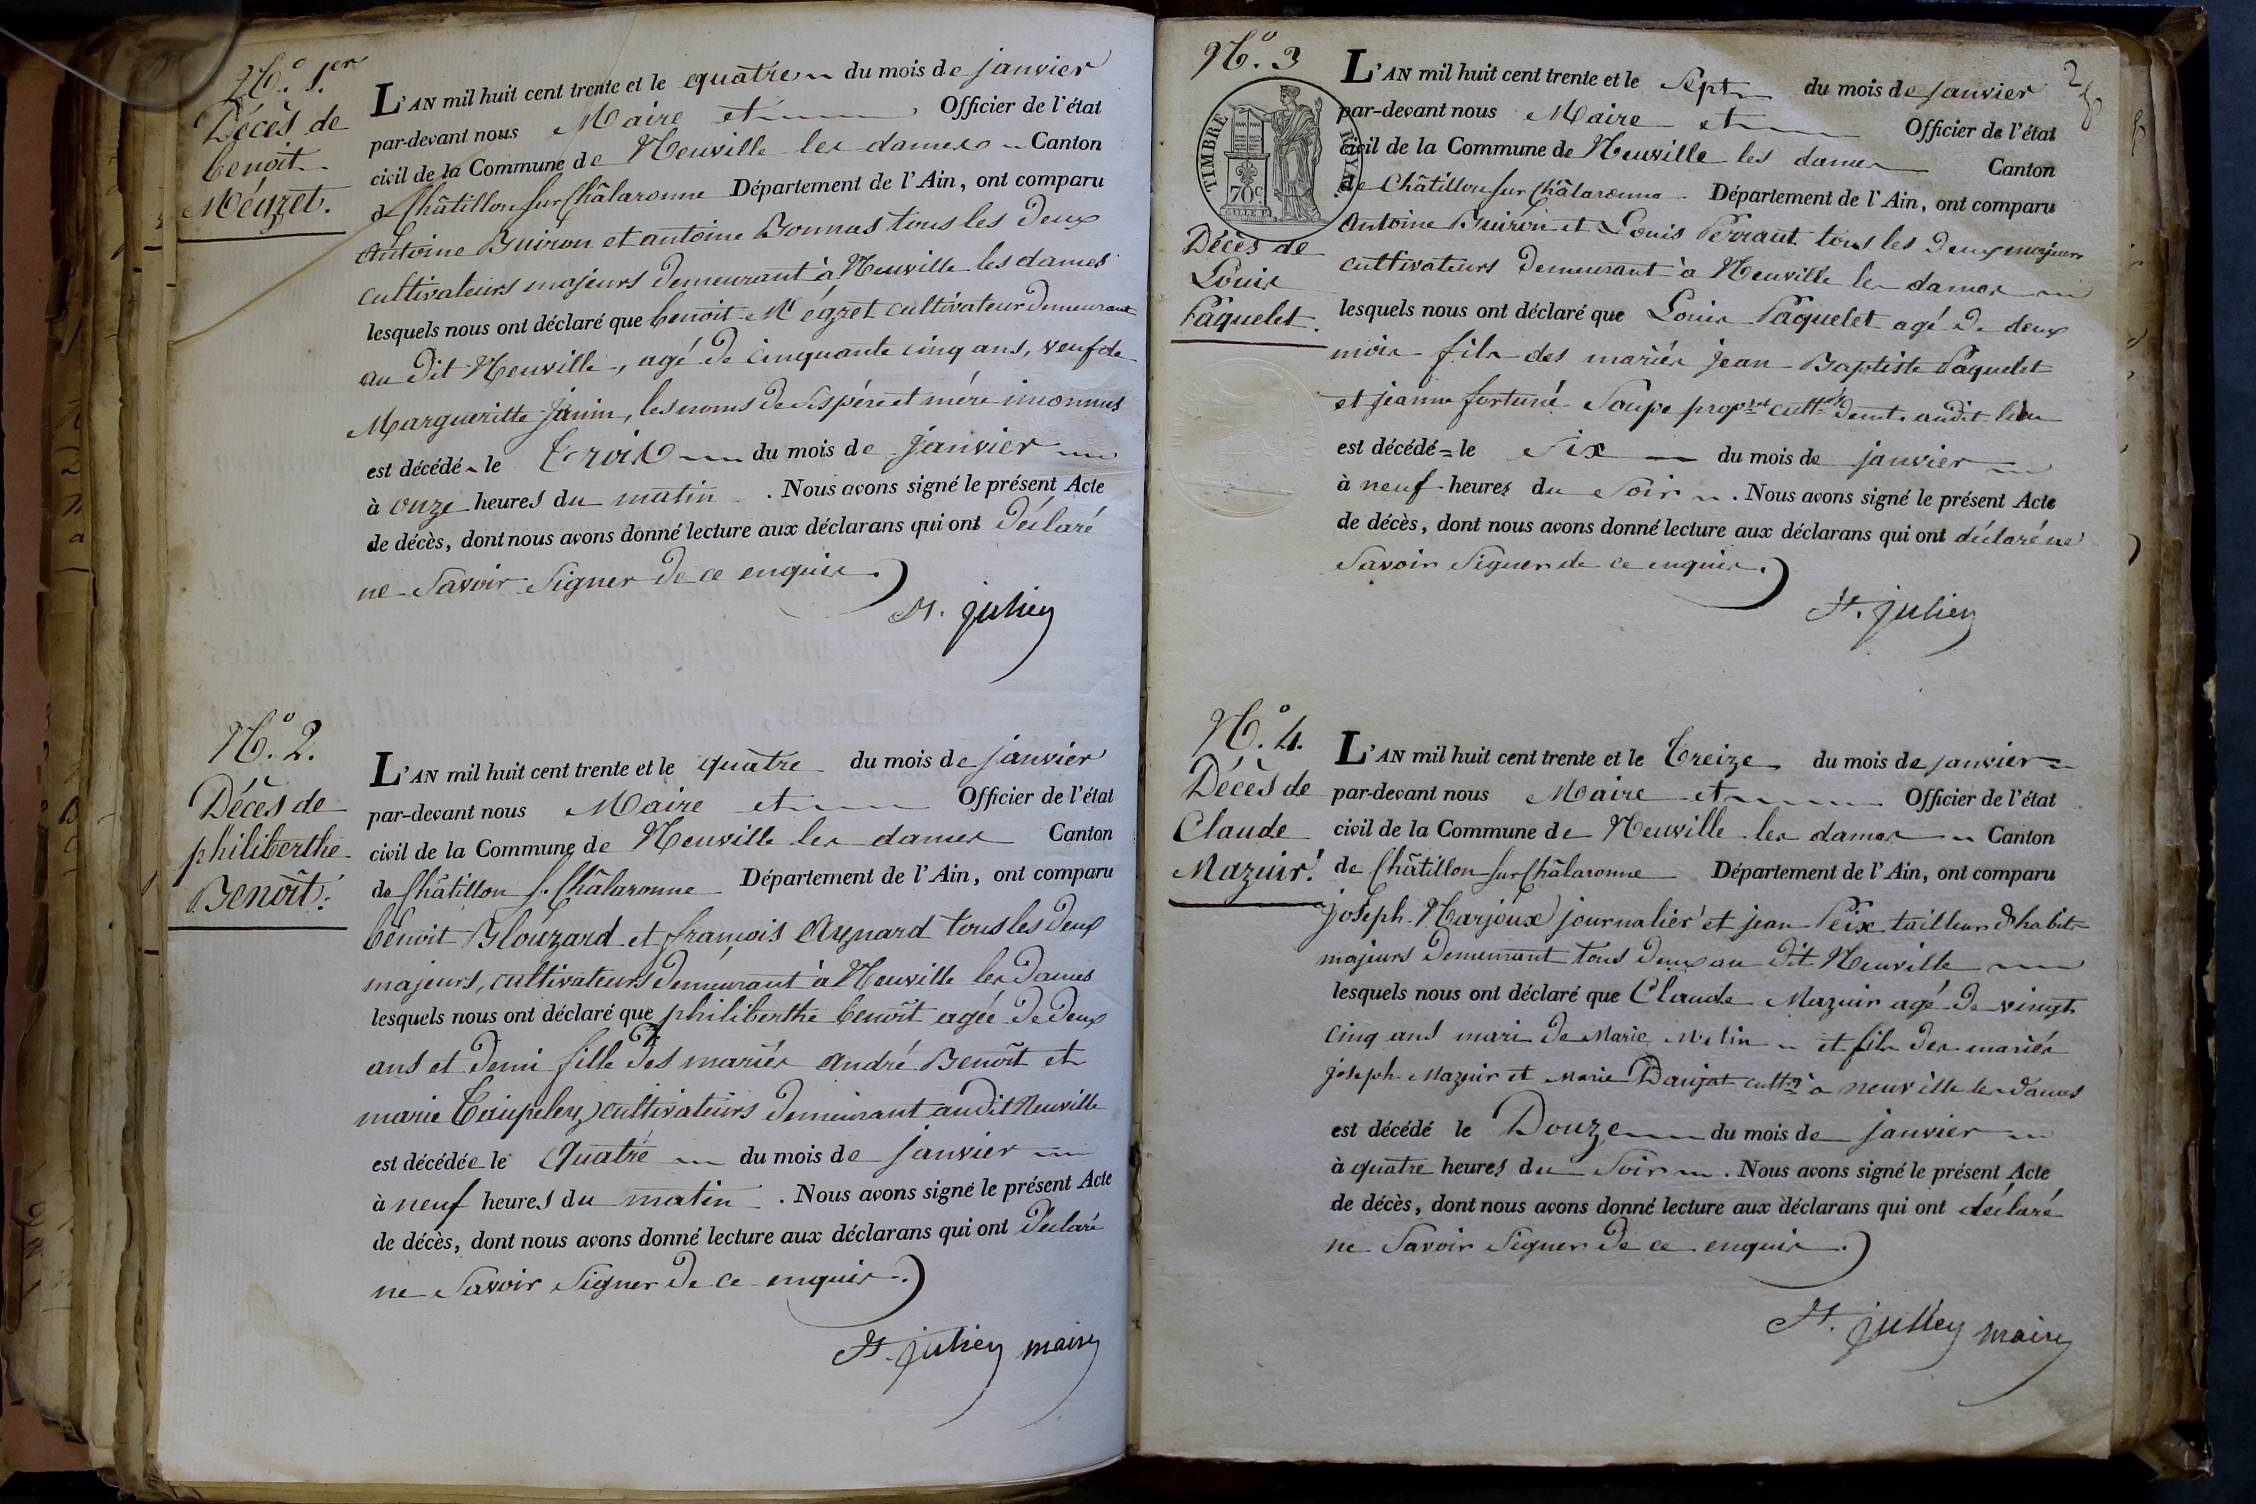 N.° 1.er
Décès de
benoit
Mégret.
L'AN mil huit cent trente et le quatre du mois de janvier
par-devant nous Maire et Officier de l'état
civil de la Commune de Neuville les dames Canton
de Châtillon sur Châlaronne Département de l'Ain, ont comparu
Antoine Buiron et antoine Bonnus tous les deux
cultivateurs majeurs demeurant à Neuville les dames
lesquels nous ont déclaré que benoit Mégret cultivateur demeurant
au dit Neuville, agé de cinquante cinq ans, veuf de
Margueritte Janin, les noms de ses père et mère inconnus
est décédé le trois du mois de janvier
à onze heures du matin . Nous avons signé le présent Acte
de décès, dont nous avons donné lecture aux déclarans qui ont déclaré
ne Savoir Signer de ce enquis.
St. julien
N.° 2.
Décès de
philiberthe
Benoit.
L'AN mil huit cent trente et le quatre du mois de janvier
par-devant nous Maire et Officier de l'état
civil de la Commune de Neuville les dames Canton
de Châtillon s. Châlaronne Département de l'Ain, ont comparu
benoit Blouzard et françois Aynard tous les deux
majeurs, cultivateurs demeurant à Neuville les Dames
lesquels nous ont déclaré que philiberthe benoît agée de deux
ans et demi fille des mariés André Benoît et
marie cultivateurs demeurant audit Neuville
est décédée le quatre du mois de janvier
à neuf heures du matin . Nous avons signé le présent Acte
de décès, dont nous avons donné lecture aux déclarans qui ont déclaré
ne Savoir Signer de ce enquis.
St. julien maire
N.° 3
2
TIMBRE ROYAL
70c
Décès de
Louis
Paquelet.
L'AN mil huit cent trente et le Sept du mois de janvier
par-devant nous Maire et Officier de l'état
civil de la Commune de Neuville les dames Canton
de Châtillon sur Châlaronne Département de l'Ain, ont comparu
Antoine Buiron et Louis Perraut tous les deux majeurs
cultivateurs demeurant à Neuville les dames
lesquels nous ont déclaré que Louis Paquelet agé de deux
mois fils des mariés jean Baptiste Paquelet
et jeanne fortuné Soupe prop.re cult.rs demt. audit lieu
est décédé le Six du mois de janvier
à neuf heures du Soir . Nous avons signé le présent Acte
de décès, dont nous avons donné lecture aux déclarans qui ont déclaré ne
Savoir Signer de ce enquis.
St. julien
N.° 4.
Décès de
Claude
Mazuir.
L'AN mil huit cent trente et le treize du mois de janvier
par-devant nous Maire et Officier de l'état
civil de la Commune de Neuville les dames Canton
de Châtillon sur Châlaronne Département de l'Ain, ont comparu
joseph Marjoux journalier et jean Peix tailleur d'habits
majeurs demeurant tous deux au dit Neuville
lesquels nous ont déclaré que Claude Mazuir agé de vingt
cinq ans mari de Marie et fils des mariés
joseph Mazuir et Marie Daujat cult.rs à neuville les Dames
est décédé le Douze du mois de janvier
à quatre heures du Soir . Nous avons signé le présent Acte
de décès, dont nous avons donné lecture aux déclarans qui ont déclaré
ne Savoir Signer de ce enquis.
St. julien maire